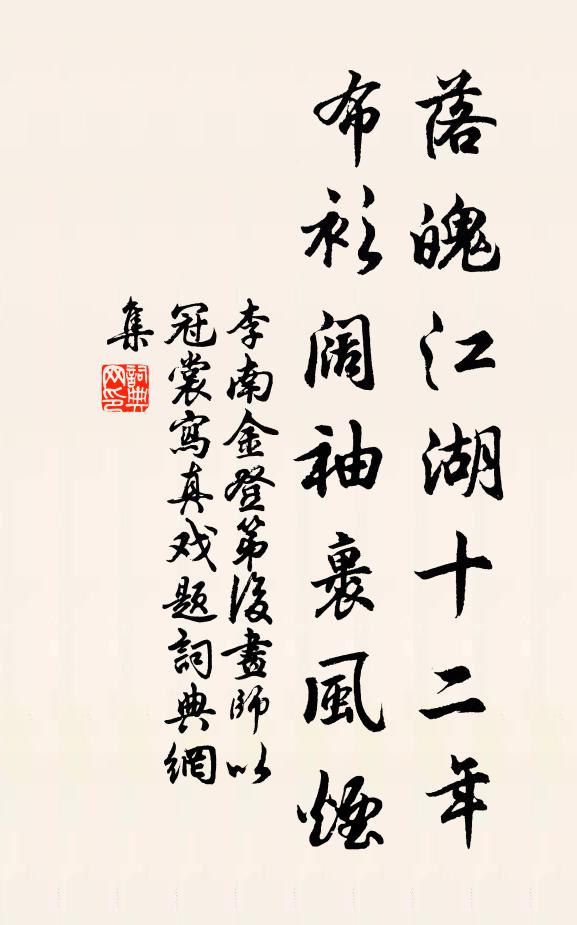 落魄江湖十二年
布衫阔袖裹風煙
李南金登第後畫師以
冠裳寫真戏題詞典網
集
詞典
网印